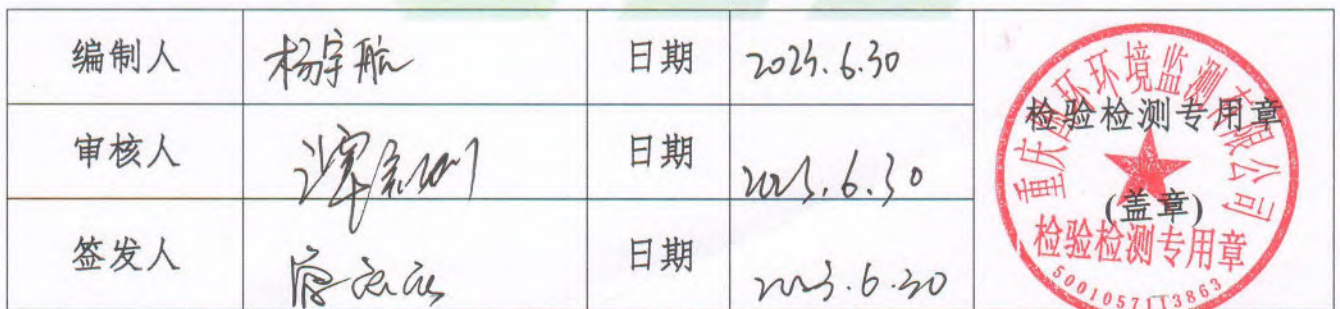 编制人 杨宇航 日期 2025.6.30
检验检测专用章
审核人 日期 2025.6.30
(盖章)
签发人 日期 2025.6.30
重庆 环环境监测有限公司
检验检测专用章
5001057113863